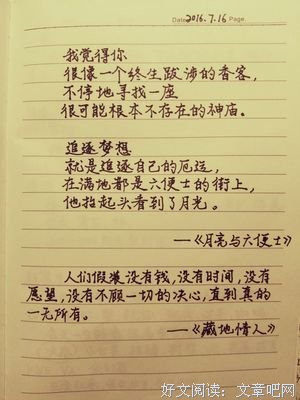 Date 2016.7.16 Page
我觉得你
很像一个终生跋涉的香客，
不停地寻找一座
很可能根本不存在的神庙。
追逐梦想
就是追逐自己的厄运，
在满地都是六便士的街上，
他抬起头看到了月光。
——《月亮与六便士》
人们假装没有钱，没有时间，没有
愿望，没有不顾一切的决心，直到真的
一无所有。
——《藏地情人》
好文阅读：文章吧网